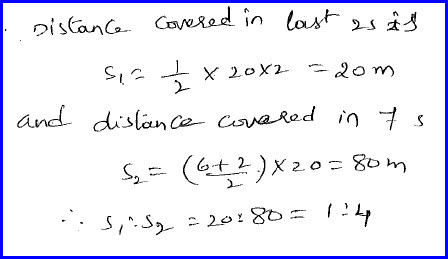 Distance covered in last 2s is
S₁ = 1/2 × 20×2 = 20 m
and distance covered in 7 s
S₂ = (6+2/2) × 20 = 80 m
∴ S₁:S₂ = 20:80 = 1:4